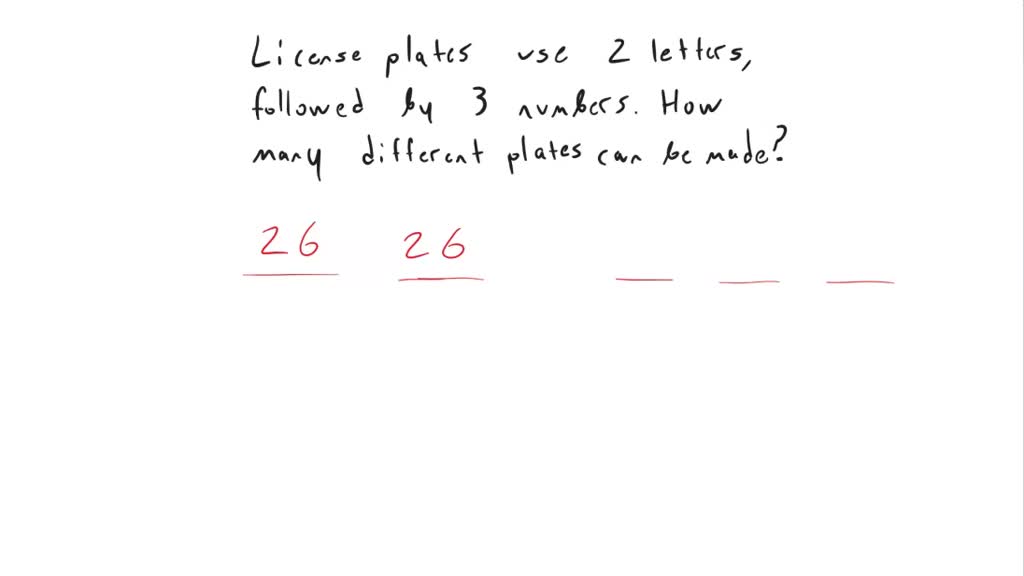 License plates use 2 letters,
followed by 3 numbers. How
many different plates can be made?
26 26